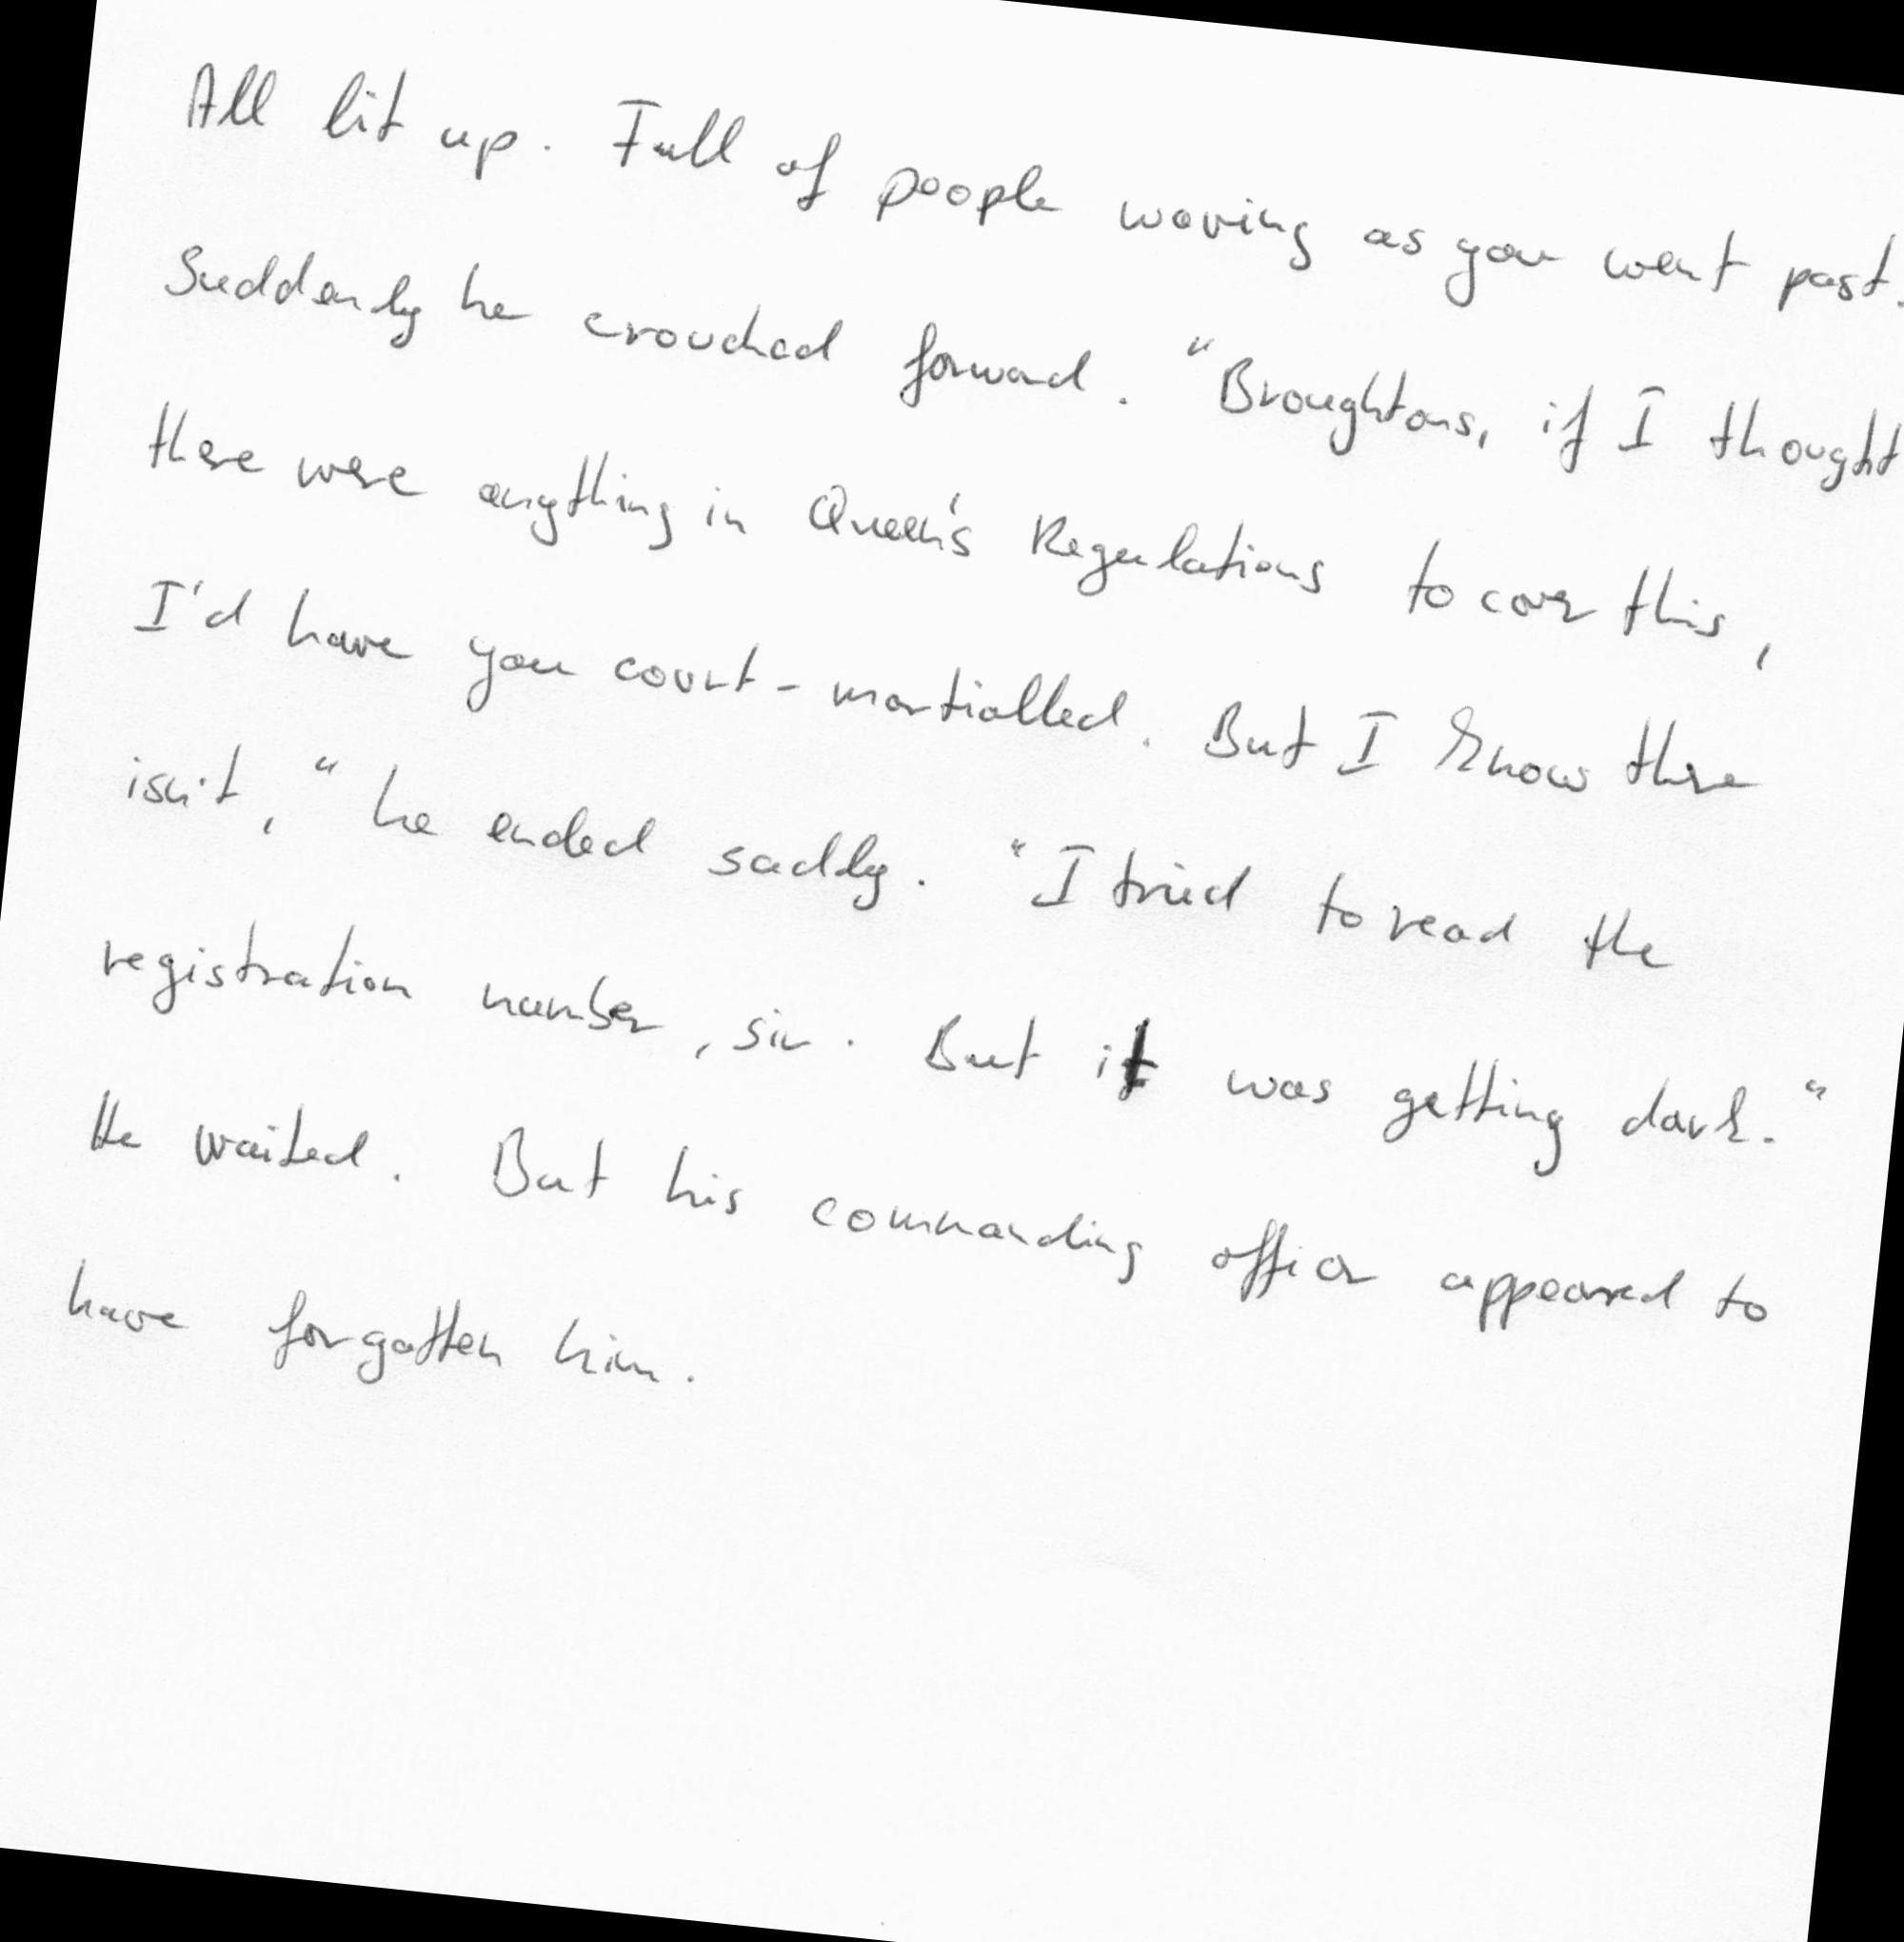 All lit up. Full of people waving as you went past.
Suddenly he crouched forward. "Broughtons, if I thought
there were anything in Queen's Regulations to cover this,
I'd have you court-martialled. But I know there
isn't," he ended sadly. "I tried to read the
registration number, sir. But it was getting dark."
He waited. But his commanding officer appeared to
have forgotten him.